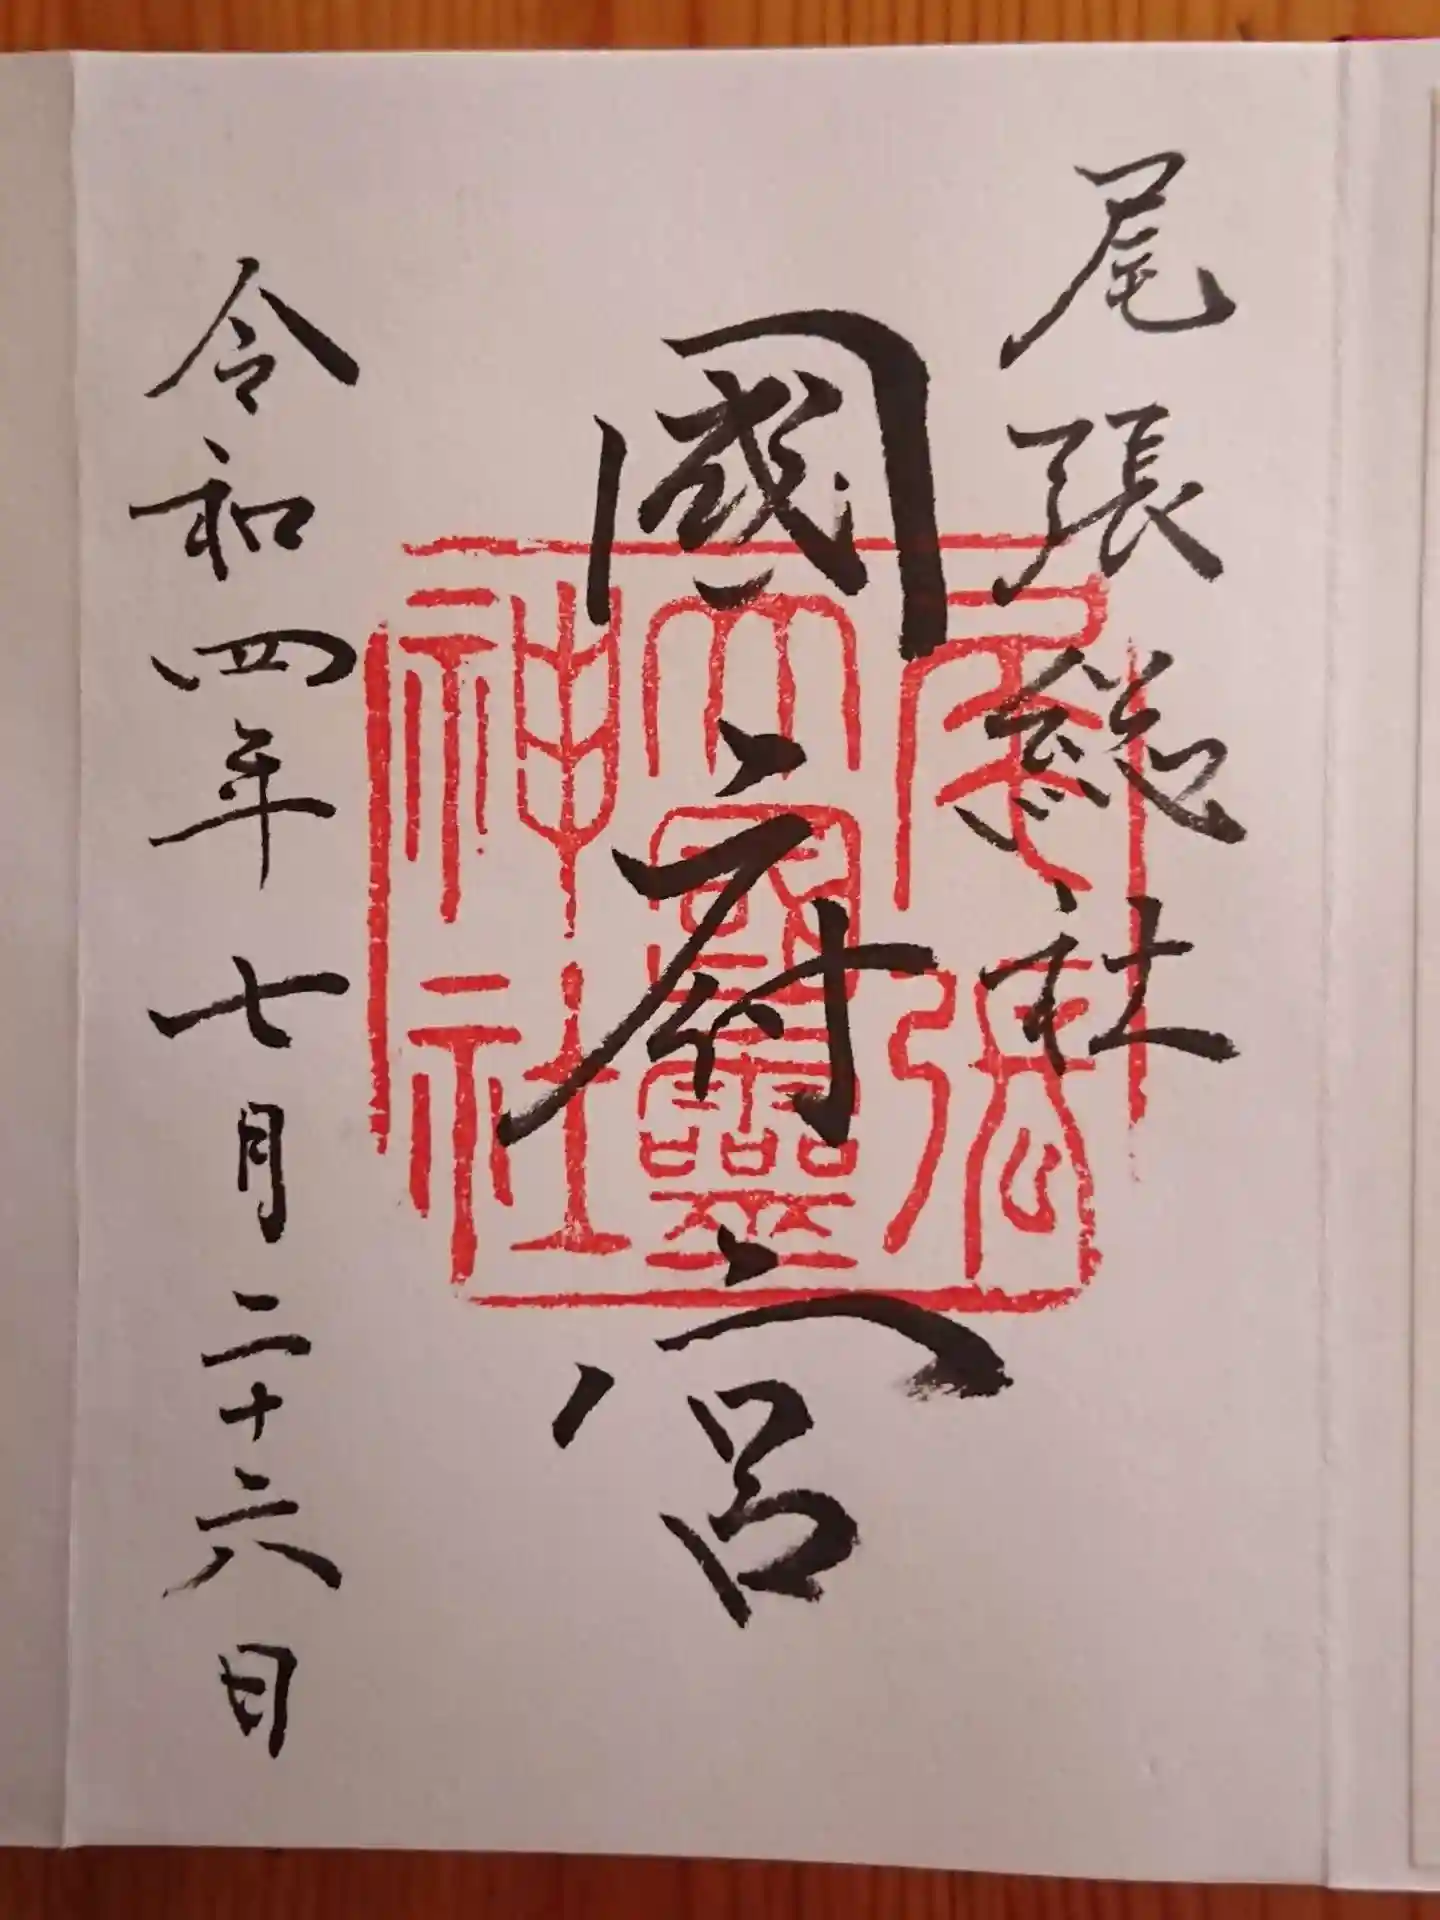 尾張総社
國府宮
令和四年七月二十六日
尾張
大國靈
神社